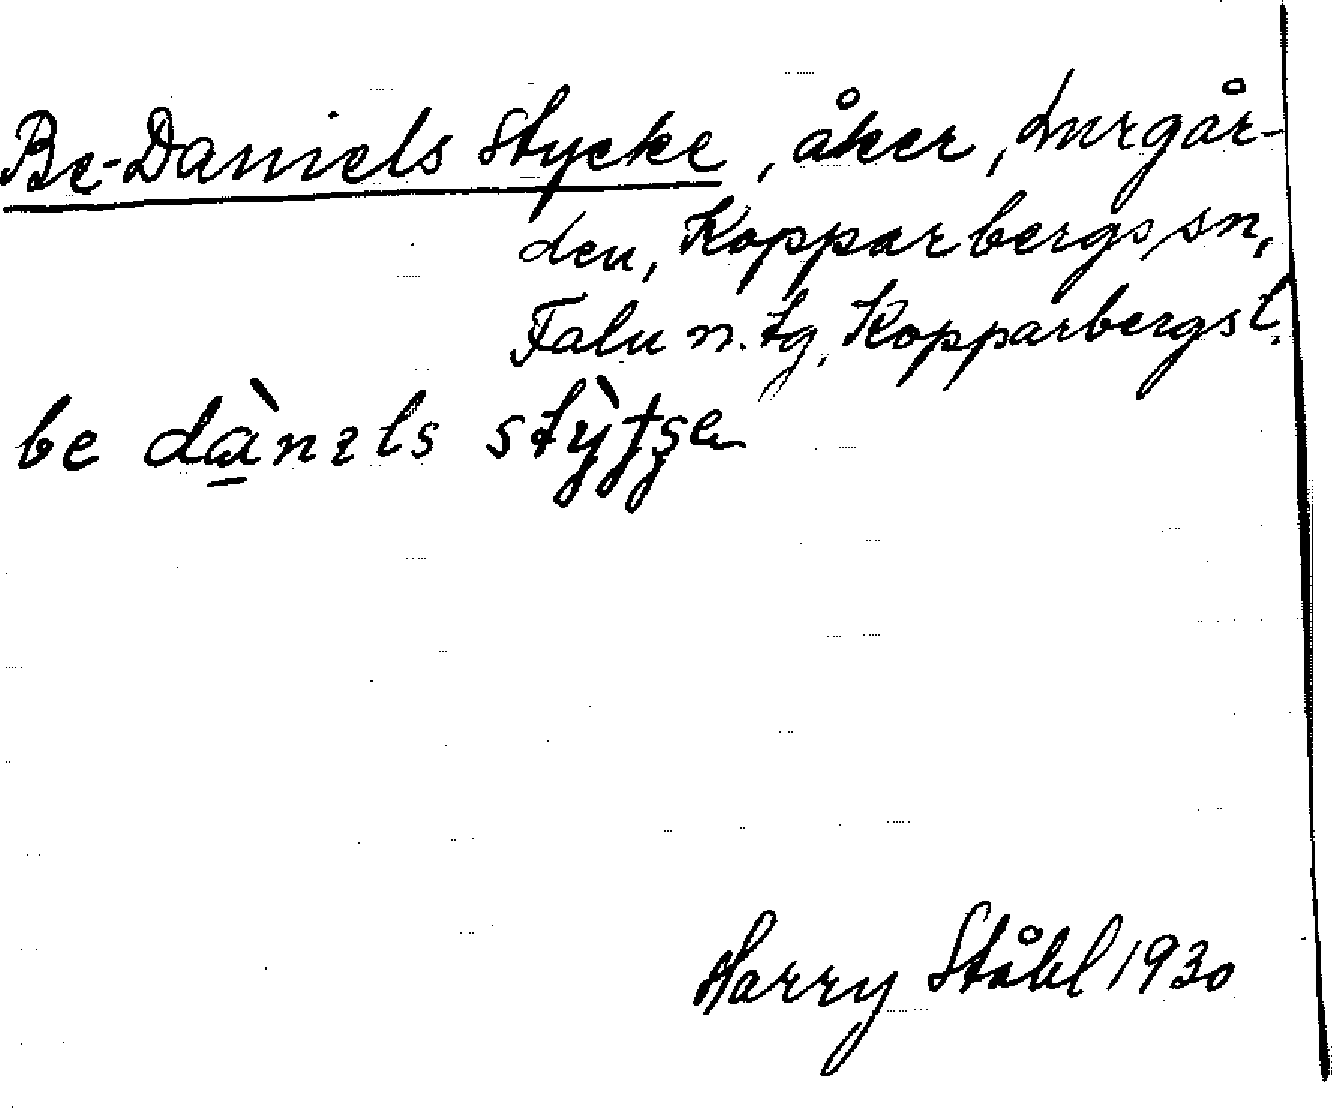 Be-Daniels Stycke, åker, Lurgår-
den, Kopparbergs sn,
Falu n. tg, Kopparbergs l.
be dànɛls stỳtse
Harry Ståhl 1930